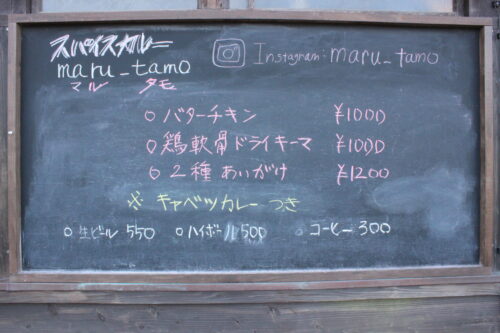 スパイスカレー
maru_tamo
マル タモ
Instagram: maru_tamo
○ バターチキン ¥1000
○ 鶏軟骨ドライキーマ ¥1000
○ 2種 あいがけ ¥1200
※ キャベツカレーつき
○ 生ビール 550 ○ ハイボール 500 ○ コーヒー 300